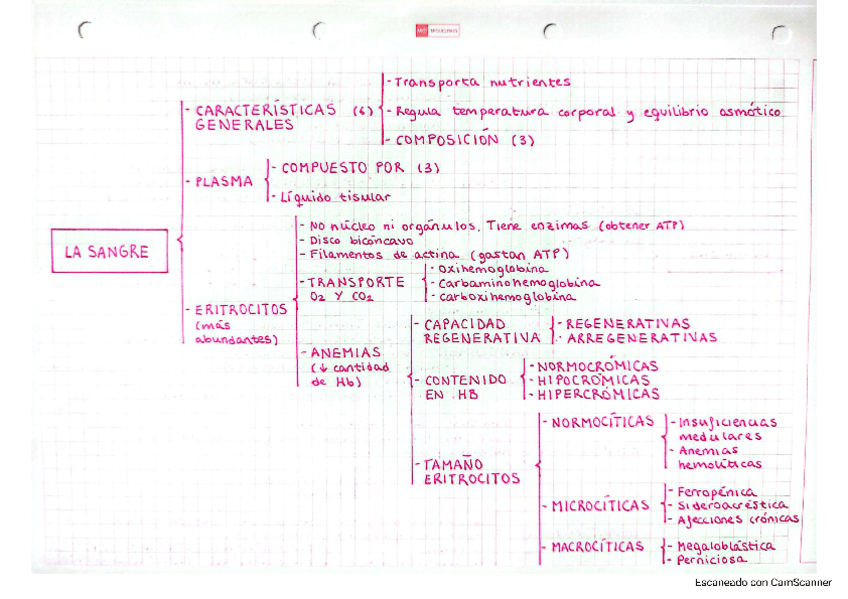 - Transporta nutrientes
- CARACTERÍSTICAS (6)
GENERALES
- Regula temperatura corporal y equilibrio osmótico
- COMPOSICIÓN (3)
- PLASMA
- COMPUESTO POR (3)
- Líquido tisular
LA SANGRE
- ERITROCITOS
(más
abundantes)
- No núcleo ni orgánulos. Tiene enzimas (obtener ATP)
- Disco bicóncavo
- Filamentos de actina (gastan ATP)
- TRANSPORTE
O2 Y CO2
- Oxihemoglobina
- Carbaminohemoglobina
- carboxihemoglobina
- ANEMIAS
(↓ cantidad
de Hb)
- CAPACIDAD
REGENERATIVA
- REGENERATIVAS
- ARREGENERATIVAS
- CONTENIDO
EN HB
- NORMOCRÓMICAS
- HIPOCRÓMICAS
- HIPERCRÓMICAS
- TAMAÑO
ERITROCITOS
- NORMOCÍTICAS
- Insuficiencias
medulares
- Anemias
hemolíticas
- MICROCÍTICAS
- Ferropénica
- Sideroacréstica
- Afecciones crónicas
- MACROCÍTICAS
- Megaloblástica
- Perniciosa
Escaneado con CamScanner